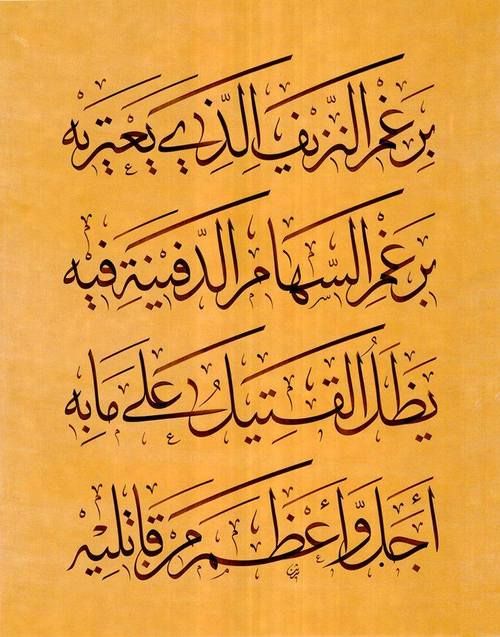 بِرَغْمِ النَّزِيفِ الَّذِي يَعْتَرِيهِ
بِرَغْمِ السِّهَامِ الدَّفِينَةِ فِيهِ
يَظَلُّ القَتِيلُ عَلَى مَا بِهِ
أَجَلَّ وَأَعْظَمَ مِنْ قَاتِلِيهِ